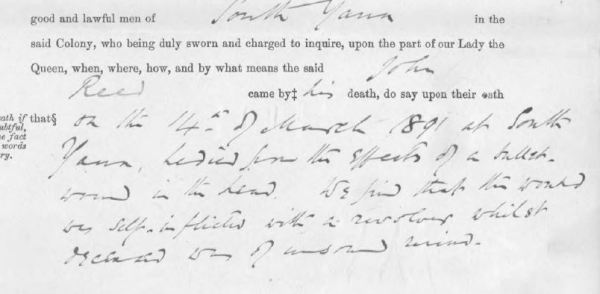 good and lawful men of South Yarra in the
said Colony, who being duly sworn and charged to inquire, upon the part of our Lady the
Queen, when, where, how, and by what means the said John
Reed came by‡ his death, do say upon their oath
that§ on the 14th of March 1891 at South
Yarra, he died from the effects of a bullet-
wound in the head. We find that the wound
was self-inflicted with a revolver whilst
deceased was of unsound mind.
ath if
ubtful,
e fact
words
ry.